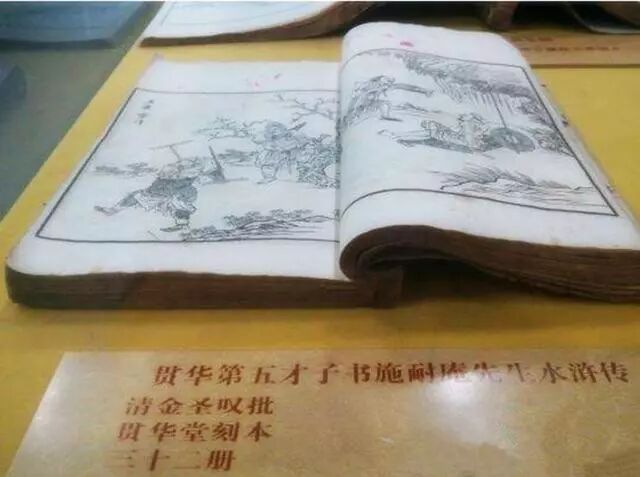 贯华第五才子书施耐庵先生水浒传
清金圣叹批
贯华堂刻本
三十二册